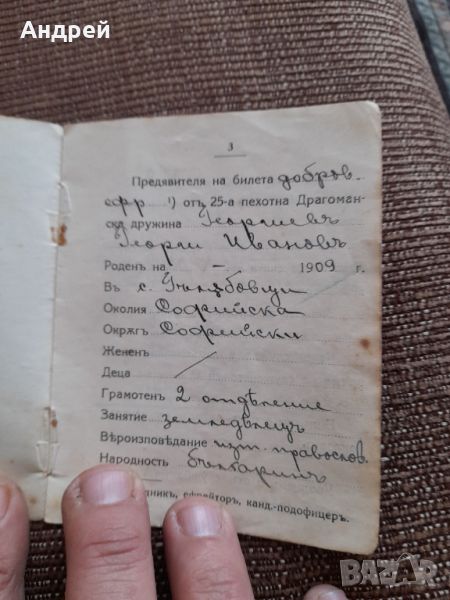 Андрей
3
Предявителя на билета добров.
ефр ¹) отъ 25-а пехотна Драгоман-
ска дружина Георгиевъ
Георги Ивановъ
Роденъ на — 1909 г.
Въ с. Гълѫбовци
Околия Софийска
Окрѫгъ Софийски
Жененъ
Деца
Грамотенъ 2 отдѣление
Занятие земледѣлецъ
Вѣроизповѣдание изт. правослов.
Народность българинъ
ефрейторъ, канд.-подофицеръ.
BAZAR